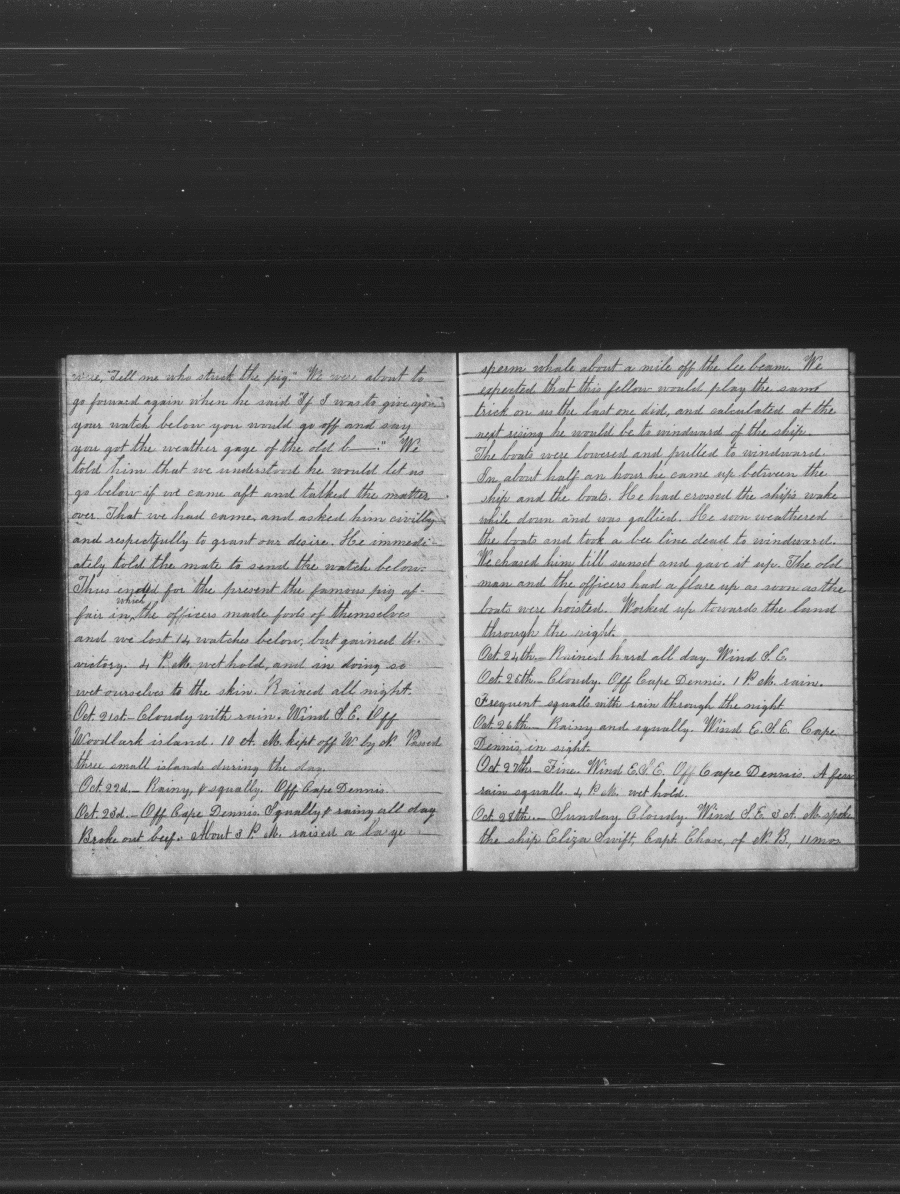 "Tell me who struck the pig." We were about to
go forward again when he said "If I was to give you
your watch below you would go off and say
you got the weather gage of the old b——." We
told him that we understood he would let us
go below if we came aft and talked the matter
over. That we had came, and asked him civilly
and respectfully to grant our desire. He immedi-
ately told the mate to send the watch below.
Thus ended for the present the famous pig af-
fair in which the officers made fools of themselves
and we lost 14 watches below, but gained the
victory. 4 P. M. wet hold, and in doing so
wet ourselves to the skin. Rained all night.
Oct. 21st — Cloudy with rain. Wind S. E. Off
Woodlark island. 10 A. M. kept off W by N. Passed
three small islands during the day.
Oct. 22d. — Rainy, & squally. Off Cape Dennis.
Oct. 23d. — Off Cape Dennis. Squally & rainy all day
Broke out beef. About 3 P. M. raised a large
sperm whale about a mile off the lee beam. We
expected that this fellow would play the same
trick on us the last one did, and calculated at the
next rising he would be to windward of the ship.
The boats were lowered and pulled to windward.
In about half an hour he came up between the
ship and the boats. He had crossed the ships wake
while down and was gallied. He soon weathered
the boats and took a bee line dead to windward.
We chased him till sunset and gave it up. The old
man and the officers had a flare up as soon as the
boats were hoisted. Worked up towards the land
through the night.
Oct. 24th — Rained hard all day. Wind S. E.
Oct. 25th — Cloudy. Off Cape Dennis. 1 P. M. rain.
Frequent squalls with rain through the night
Oct. 26th — Rainy and squally. Wind E. S. E. Cape
Dennis in sight.
Oct. 27th — Fine. Wind E. S. E. Off Cape Dennis. A few
rain squalls. 4 P. M. wet hold.
Oct. 28th. — Sunday Cloudy. Wind S. E. 3 A. M. spoke
the ship Eliza Swift, Capt. Chase, of N. B., 11 mos